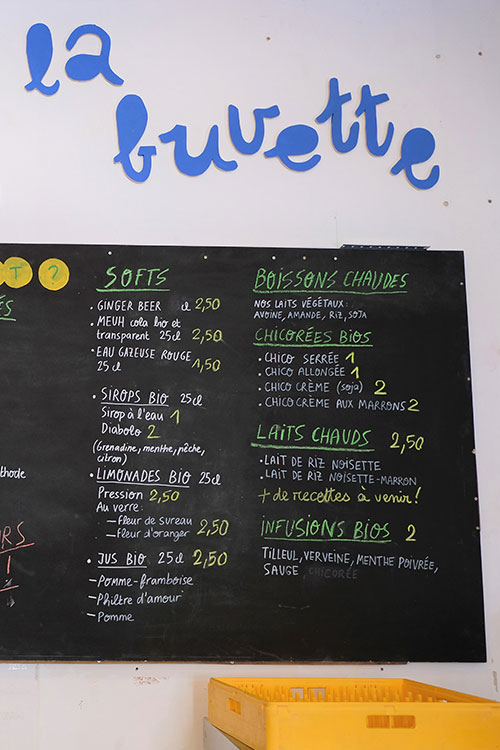 la
buvette
T ?
ÉS
thode
RS
1
SOFTS
• GINGER BEER cl 2,50
• MEUH cola bio et
transparent 25cl 2,50
• EAU GAZEUSE ROUGE
25 cl 1,50
• SIROPS BIO 25cl
Sirop à l'eau 1
Diabolo 2
(Grenadine, menthe, pêche,
citron)
• LIMONADES BIO 25cl
Pression 2,50
Au verre:
— Fleur de sureau
— Fleur d'oranger 2,50
• JUS BIO 25cl 2,50
— Pomme-framboise
— Philtre d'amour
— Pomme
BOISSONS CHAUDES
NOS LAITS VÉGÉTAUX:
AVOINE, AMANDE, RIZ, SOJA
CHICORÉES BIOS
• CHICO SERRÉE 1
• CHICO ALLONGÉE 1
• CHICO CRÈME (soja) 2
• CHICO CRÈME AUX MARRONS 2
LAITS CHAUDS 2,50
• LAIT DE RIZ NOISETTE
• LAIT DE RIZ NOISETTE-MARRON
+ de recettes à venir!
INFUSIONS BIOS 2
TILLEUL, VERVEINE, MENTHE POIVRÉE,
SAUGE, CHICORÉE